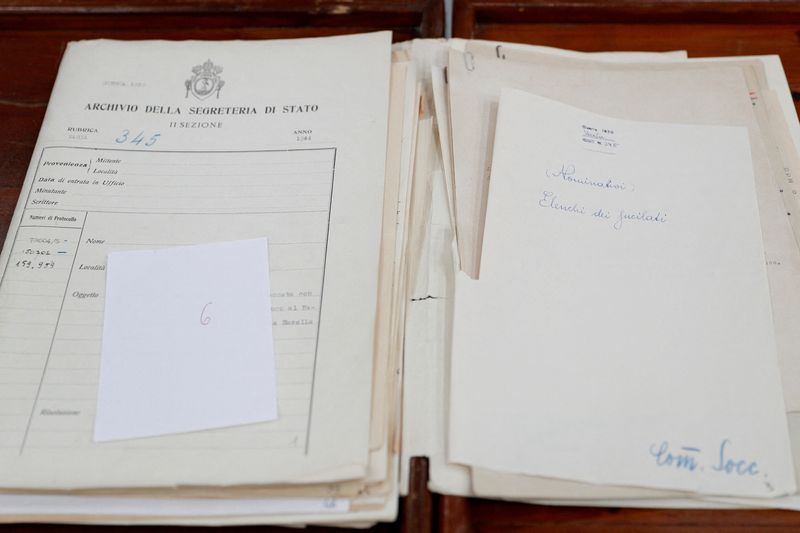 ARCHIVIO DELLA SEGRETERIA DI STATO
II SEZIONE
RUBRICA
345
ANNO
Provenienza
Mittente
Località
Data di entrata in Ufficio
Minutante
Scrittore
Numeri di Protocollo
Nome
159,954
Località
Oggetto
6
Risoluzione
(Nominativi)
Elenchi dei fucilati
Com. Socc.